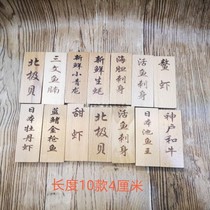 北极贝
三文鱼腩
新鲜小青龙
新鲜生蚝
海胆刺身
活鱼刺身
螯虾
日本牡丹虾
蓝鳍金枪鱼
甜虾
北极贝
活鱼刺身
日本池鱼王
神户和牛
长度10款4厘米